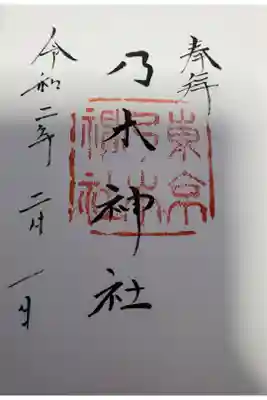 奉拜
乃木神社
東京乃木神社
令和二年二月一日